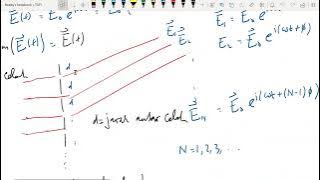 E⃗(t) = E⃗₀ e
E⃗₁ = E⃗₀ e
(E⃗(t)) = E⃗(t)
E⃗₂ = E⃗₀ e^{i(ωt+φ)}
E⃗₁
E⃗₂
celah
d
d
d
d = jarak antar celah
E⃗_N = E⃗₀ e^{i(ωt+(N-1)φ)}
N = 1, 2, 3, ...